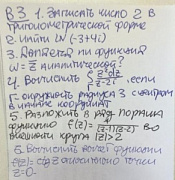 В3 1. Записать число 2 в
тригонометрической
форме
2. Найти LN (-3+4i)
3. Является ли функция
W = z̅ аналитической?
4. Вычислить ∫ z²dz, если
окружность радиуса 3 с центром
в начале координат
5. Разложить в ряд Лорана
функцию f(z) = 1/((z-1)(z-2)) во
внешности круга |z|>2
6. Вычислить вычет функции
z=0